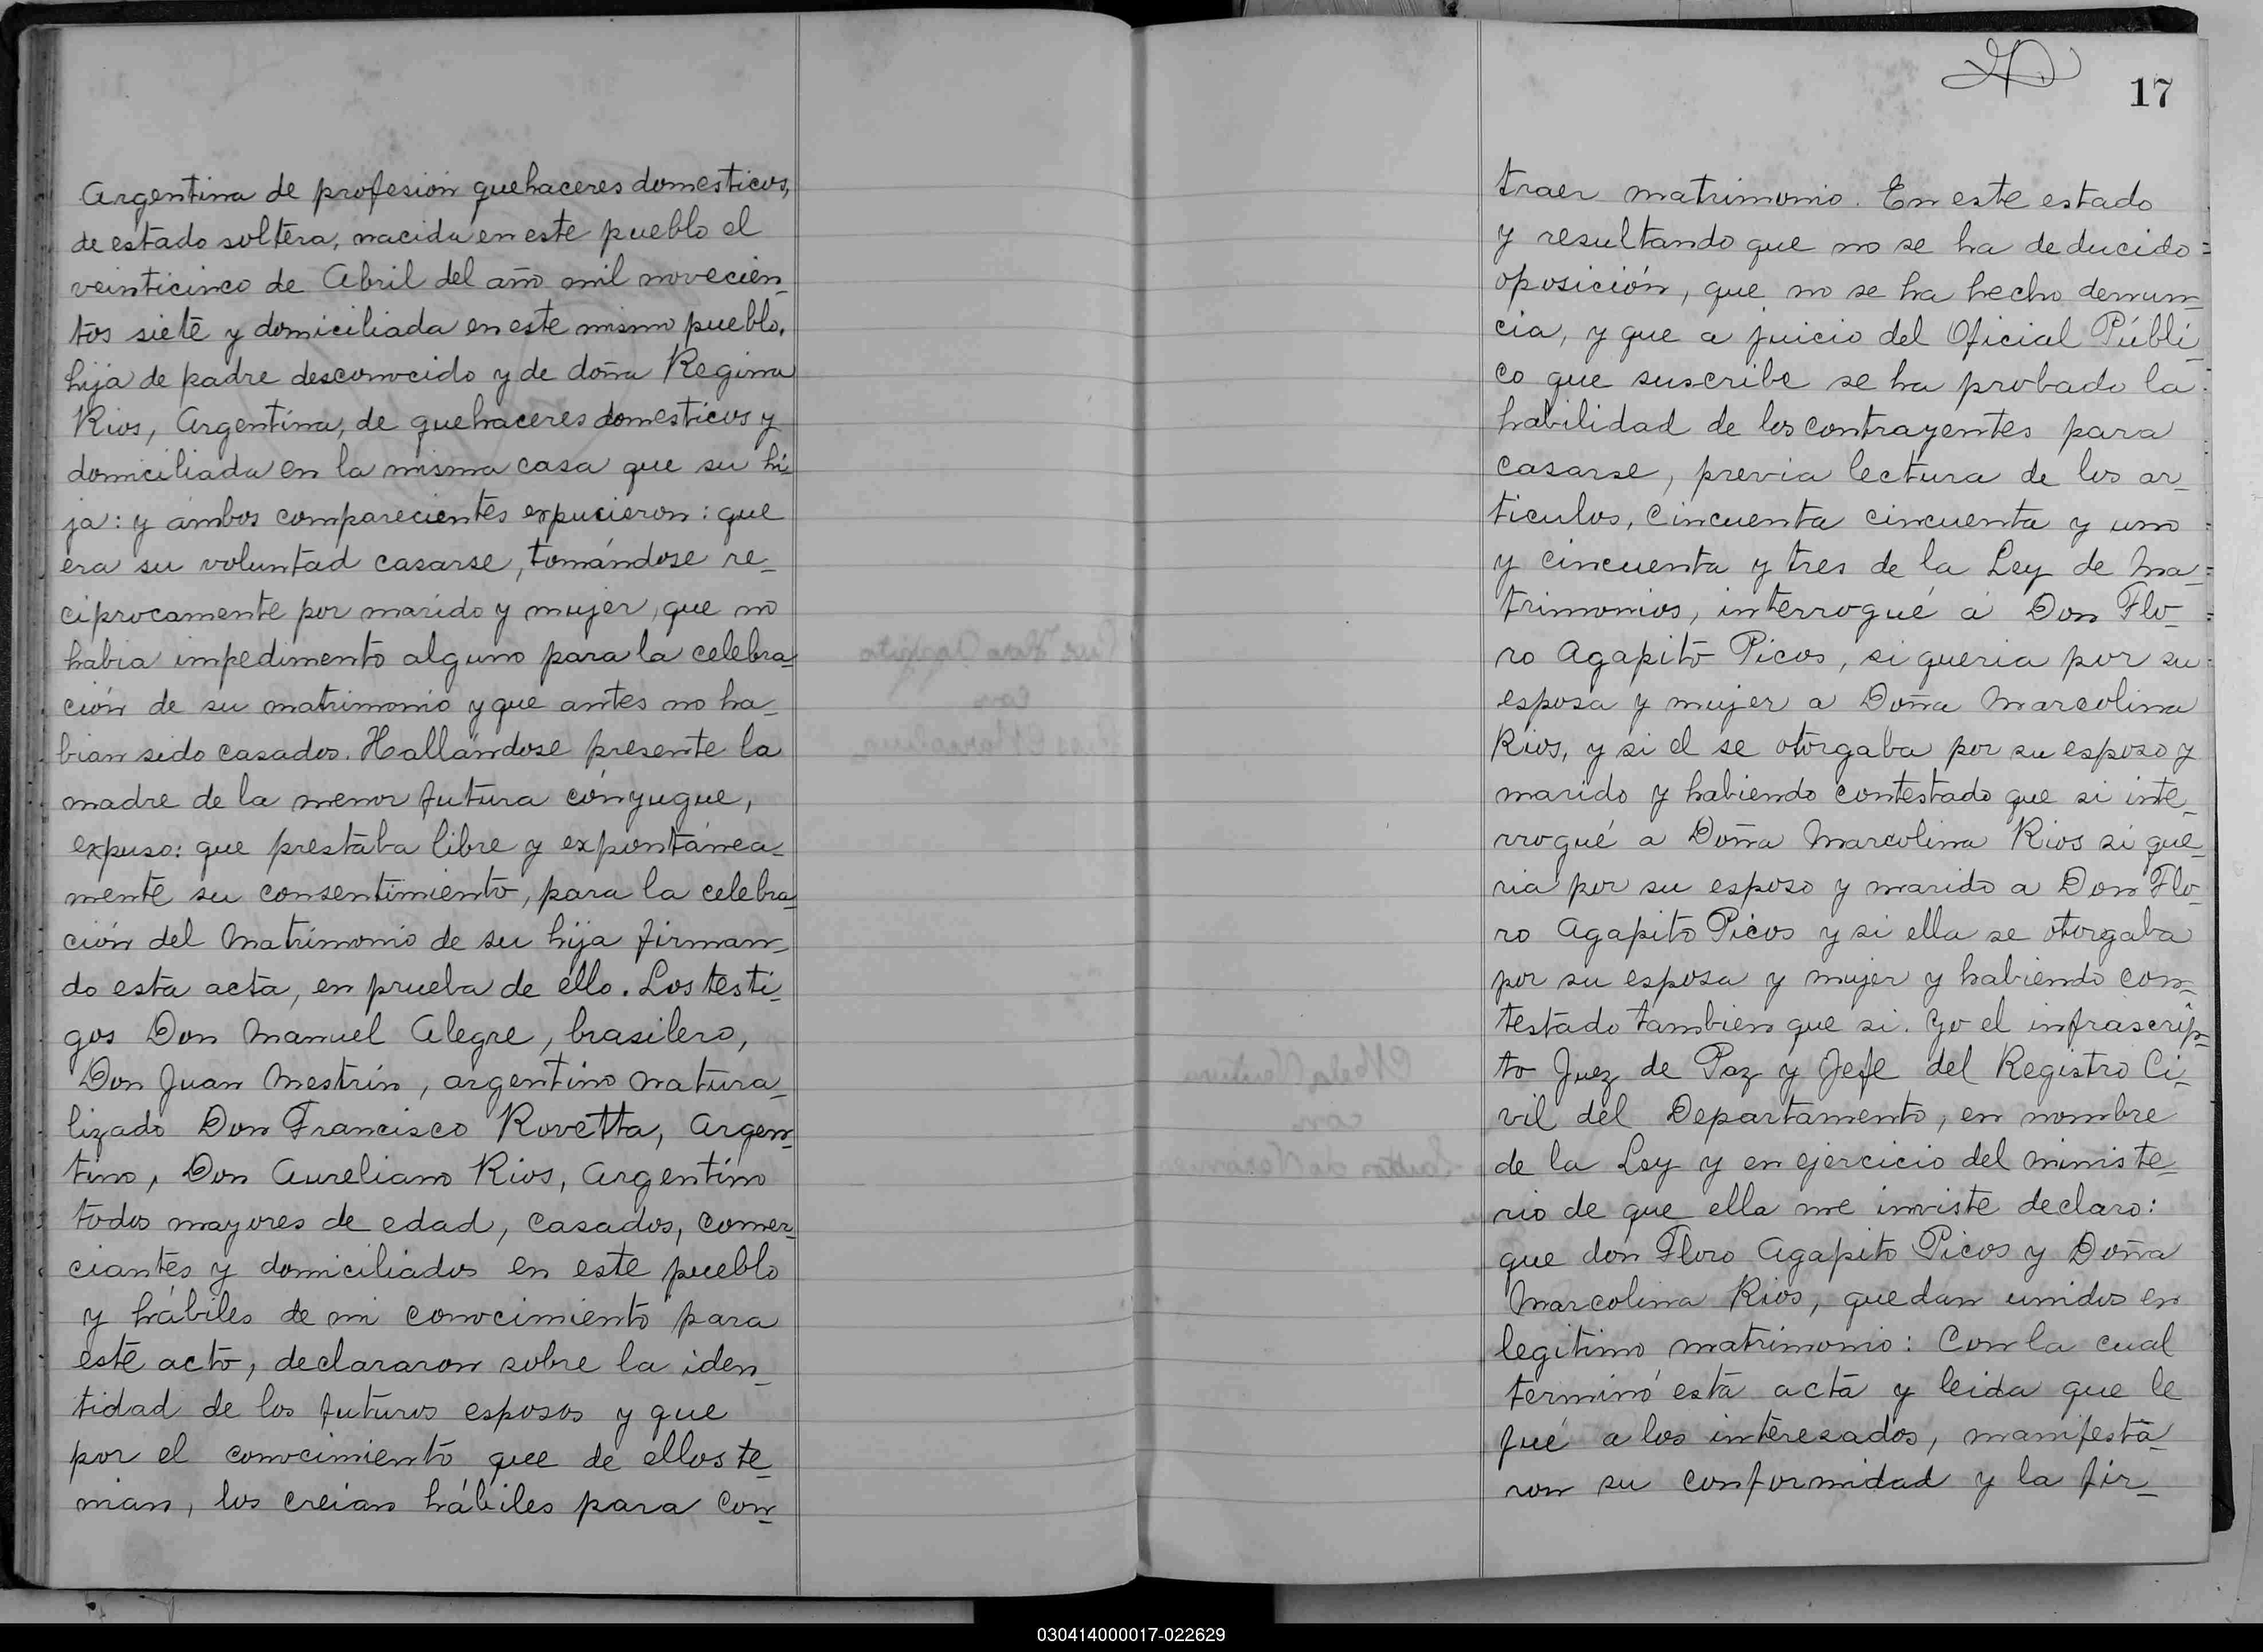 Argentina de profesion quehaceres domesticos,
de estado soltera, nacida en este pueblo el
veinticinco de Abril del año mil novecien_
tos siete y domiciliada en este mismo pueblo,
hija de padre desconocido y de doña Regina
Rios, Argentina, de quehaceres domesticos y
domiciliada en la misma casa que su hi_
ja: y ámbos comparecientes expucieron: que
era su voluntad casarse, tomándose re_
ciprocamente por marido y mujer, que no
habia impedimento alguno para la celebra_
ción de su matrimonio y que antes no ha_
bian sido casados. Hallándose presente la
madre de la menor futura cónyugue,
expuso: que prestaba libre y expontánea_
mente su consentimiento, para la celebra_
ción del Matrimonio de su hija firman_
do esta acta, en prueba de ello. Los testi_
gos Don Manuel Alegre, brasilero,
Don Juan Mestrin, argentino natura_
lizado Don Francisco Rovetta, Argen_
tino, Don Aureliano Rios, Argentino
todos mayores de edad, casados, comer_
ciantes y domiciliados en este pueblo
y hábiles de mi conocimiento para
este acto, declararon sobre la iden_
tidad de los futuros esposos y que
por el conocimiento que de ellos te_
nian, los creian hábiles para con_
17
traer matrimonio. En este estado
y resultando que no se ha deducido =
oposición, que no se ha hecho denun_
cia, y que a juicio del Oficial Públi_
co que suscribe se ha probado la
habilidad de los contrayentes para
casarse, previa lectura de los ar_
ticulos, cincuenta cincuenta y uno
y cincuenta y tres de la Ley de Ma_
trimonios, interrogué á Don Flo_
ro Agapito Picos, si queria por su
esposa y mujer a Doña Marcolina
Rios, y si el se otorgaba por su esposo y
marido y habiendo contestado que si inte_
rrogué a Doña Marcolina Rios si que_
ria por su esposo y marido a Don Flo_
ro Agapito Picos y si ella se otorgaba
por su esposa y mujer y habiendo con_
testado tambien que si. Yo el infrascrip_
to Juez de Paz y Jefe del Registro Ci_
vil del Departamento, en nombre
de la Ley y en ejercicio del ministe_
rio de que ella me inviste declaro:
que don Floro Agapito Picos y Doña
Marcolina Rios, quedan unidos en
legitimo matrimonio: Con la cual
terminó esta acta y leida que le
fué a los interesados, manifesta_
ron su conformidad y la fir_
030414000017-022629